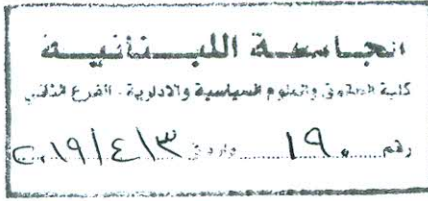 الجامعة اللبنانية
كلية الحقوق والعلوم السياسية والادارية - الفرع الثاني
رقم ١٩٠ وارد في ٢٠١٩/٤/٣